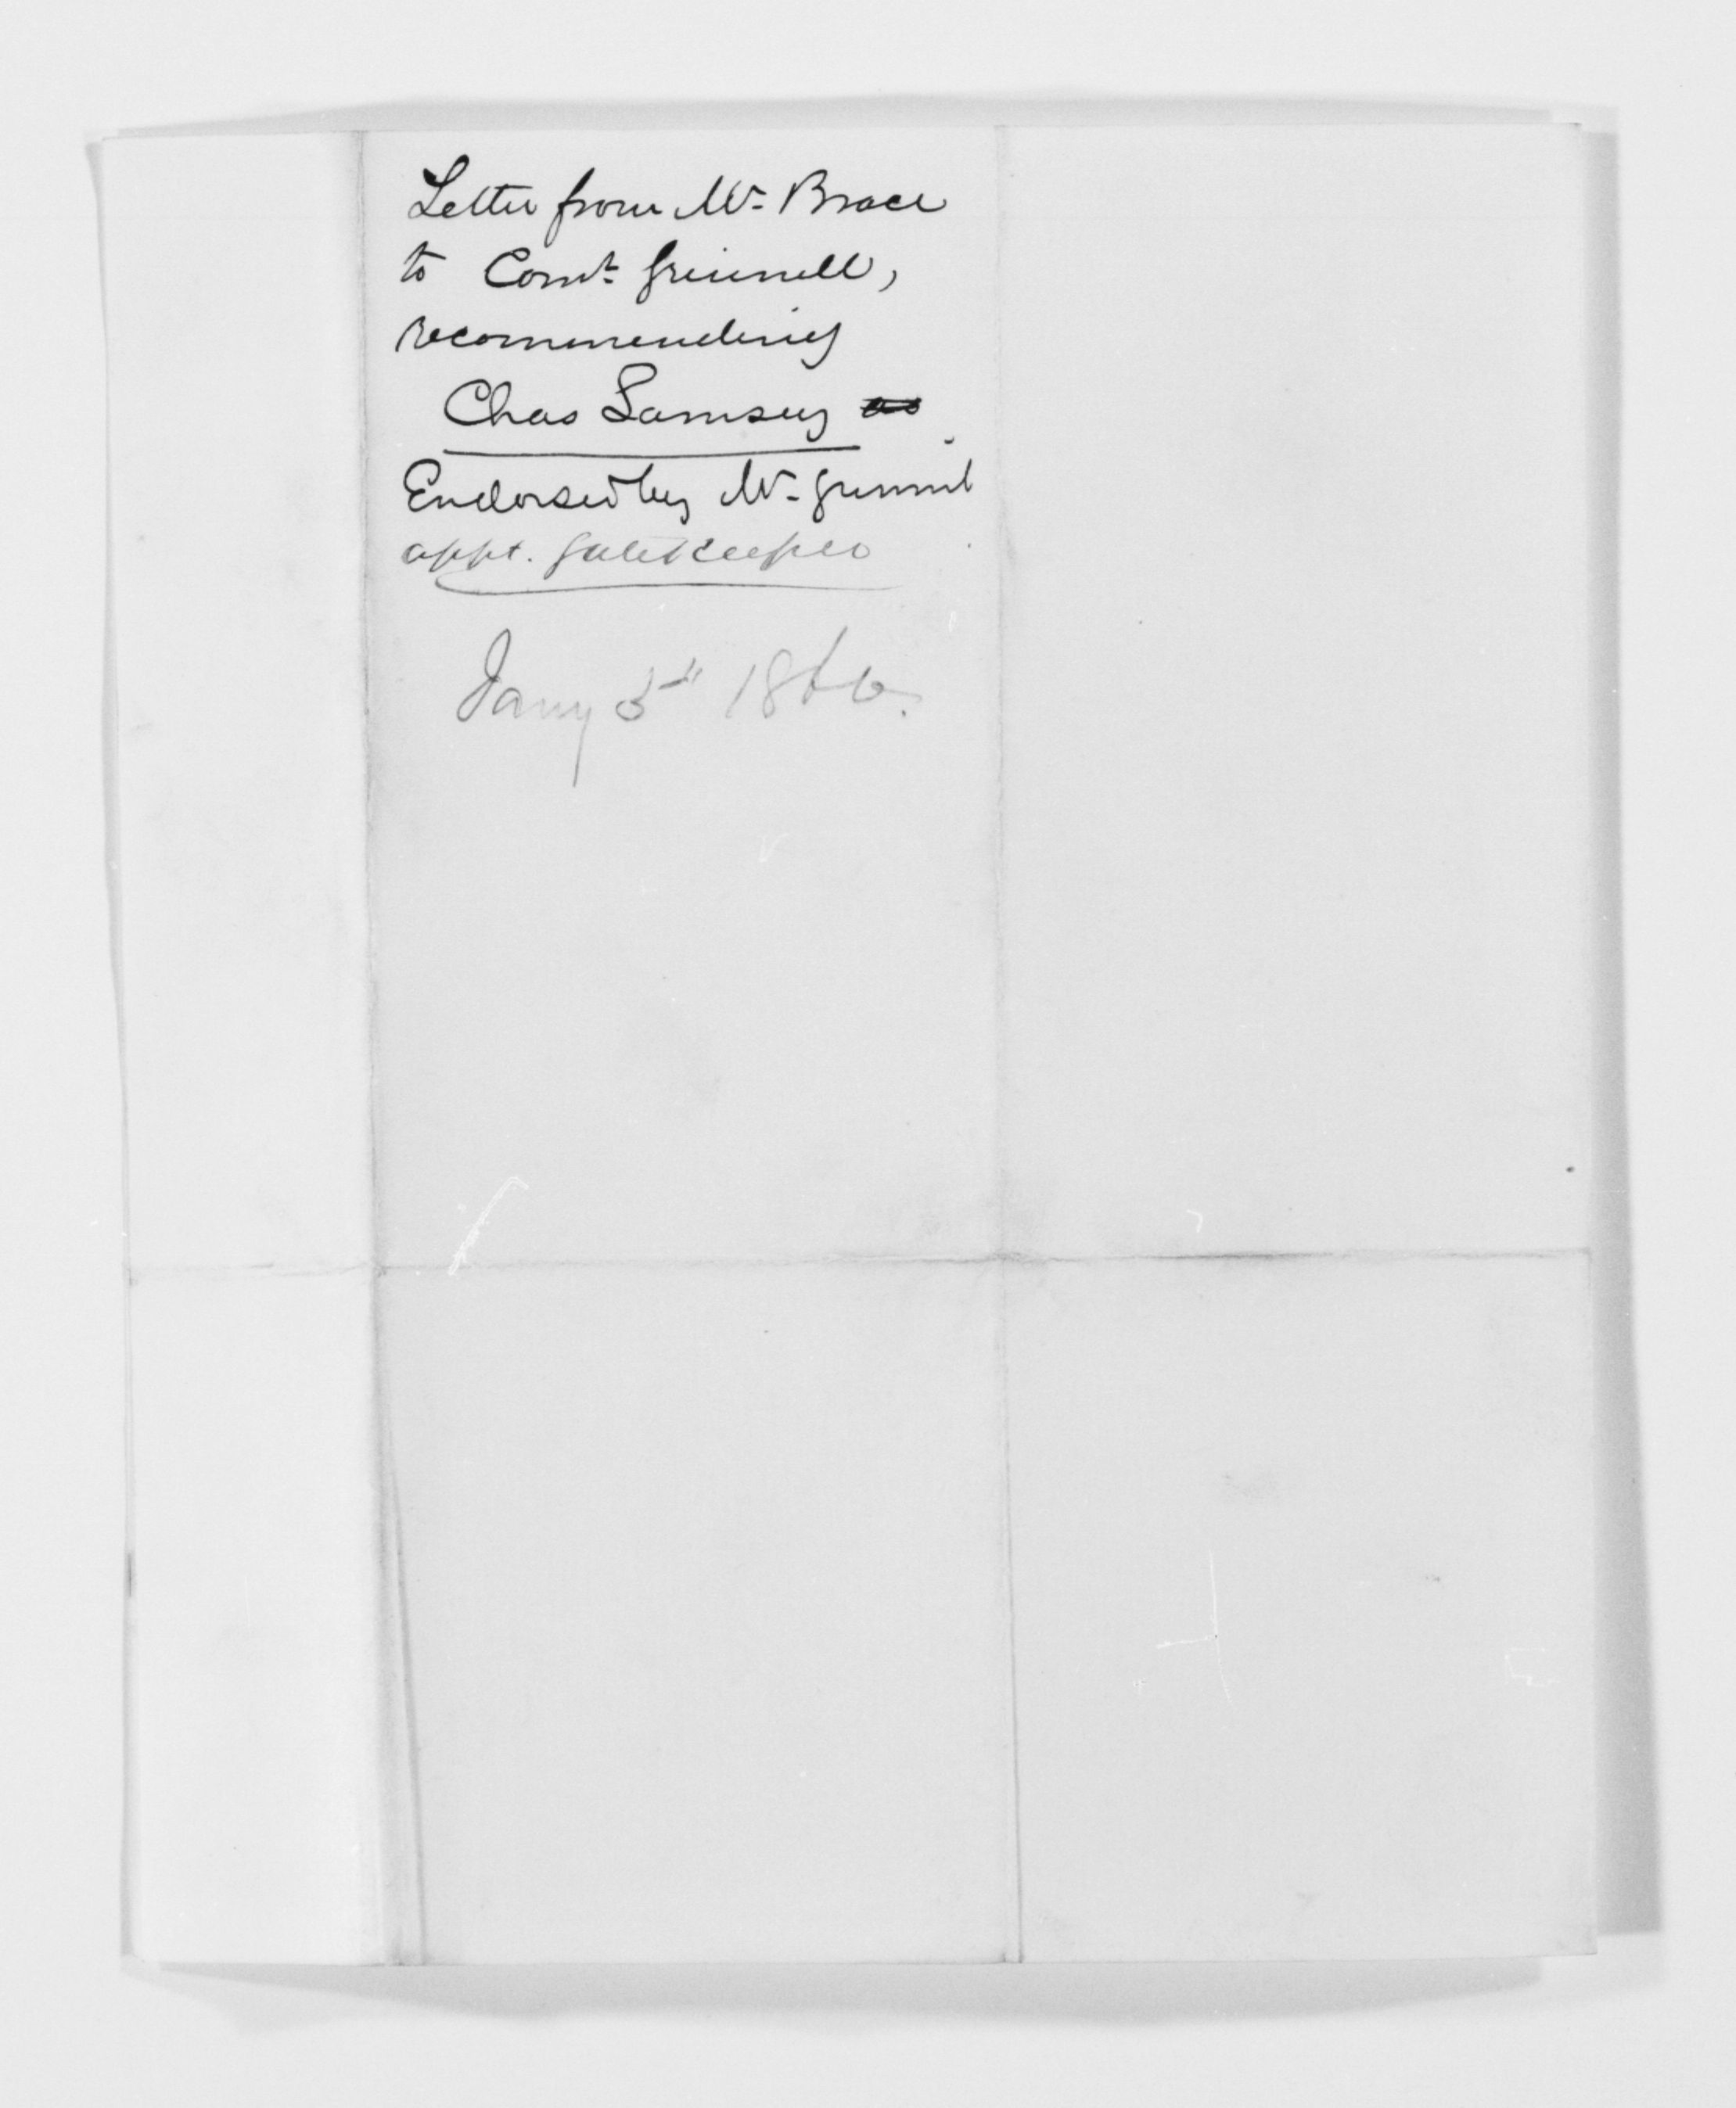 Letter from Mr. Brace
to Comr. Grinnell,
recommending
Chas Lamsey as
Endorsed by Mr. Grinnell
appt. gatekeeper
Jany 3d 1860.